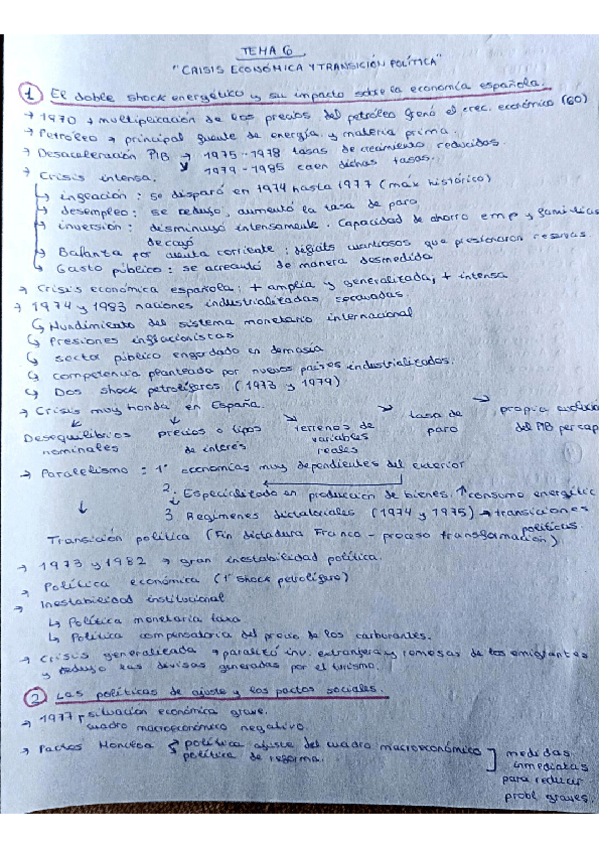 TEMA 6
"CRISIS ECONÓMICA Y TRANSICIÓN POLÍTICA"
1 El doble shock energético y su impacto sobre la economía española.
→ 1970 → multiplicación de los precios del petróleo frenó el crec. económico (60)
→ Petróleo → principal fuente de energía y materia prima.
→ Desaceleración PIB → 1975-1978 tasas de crecimiento reducidas.
↘ 1979-1985 caen dichas tasas.
→ Crisis intensa.
↳ inflación: se disparó en 1974 hasta 1977 (máx histórico)
↳ desempleo: se redujo, aumentó la tasa de paro
↳ inversión: disminuyó intensamente. Capacidad de ahorro emp y familias
decayó
↳ Balanza por cuenta corriente: déficits cuantiosos que presionaron reservas.
↳ Gasto público: se acrecentó de manera desmedida
→ Crisis económica española: + amplia y generalizada, + intensa
→ 1974 y 1983 naciones industrializadas
↳ Hundimiento del sistema monetario internacional
↳ Presiones inflacionistas
↳ sector público engordado en demasía
↳ competencia planteada por nuevos países industrializados.
↳ Dos shock petrolíferos (1973 y 1979)
→ Crisis muy honda en España.
Desequilibrios nominales
precios o tipos de interés
terrenos de variables reales
tasa de paro
propia evolució
del PIB per cap
→ Paralelismo: 1º economías muy dependientes del exterior
2. Especialistado en producción de bienes ↑consumo energétic
3 Regímenes dictatoriales (1974 y 1975) → transiciones
políticas
Transición política (Fin dictadura Franco - proceso transformación)
→ 1973 y 1982 → gran inestabilidad política.
→ Política económica (1º shock petrolífero)
→ Inestabilidad institucional
↳ Política monetaria laxa
↳ Política compensatoria del precio de los carburantes.
→ Crisis generalizada → paralizó inv. extranjera y remesas de los emigrantes
y redujo las divisas generadas por el turismo.
2 Las políticas de ajuste y los pactos sociales.
→ 1977 → situación económica grave.
cuadro macroeconómico negativo.
→ Pactos Moncloa { política ajuste del cuadro macroeconómico
política de reforma.
] medidas
inmediatas
para reducir
probl graves.